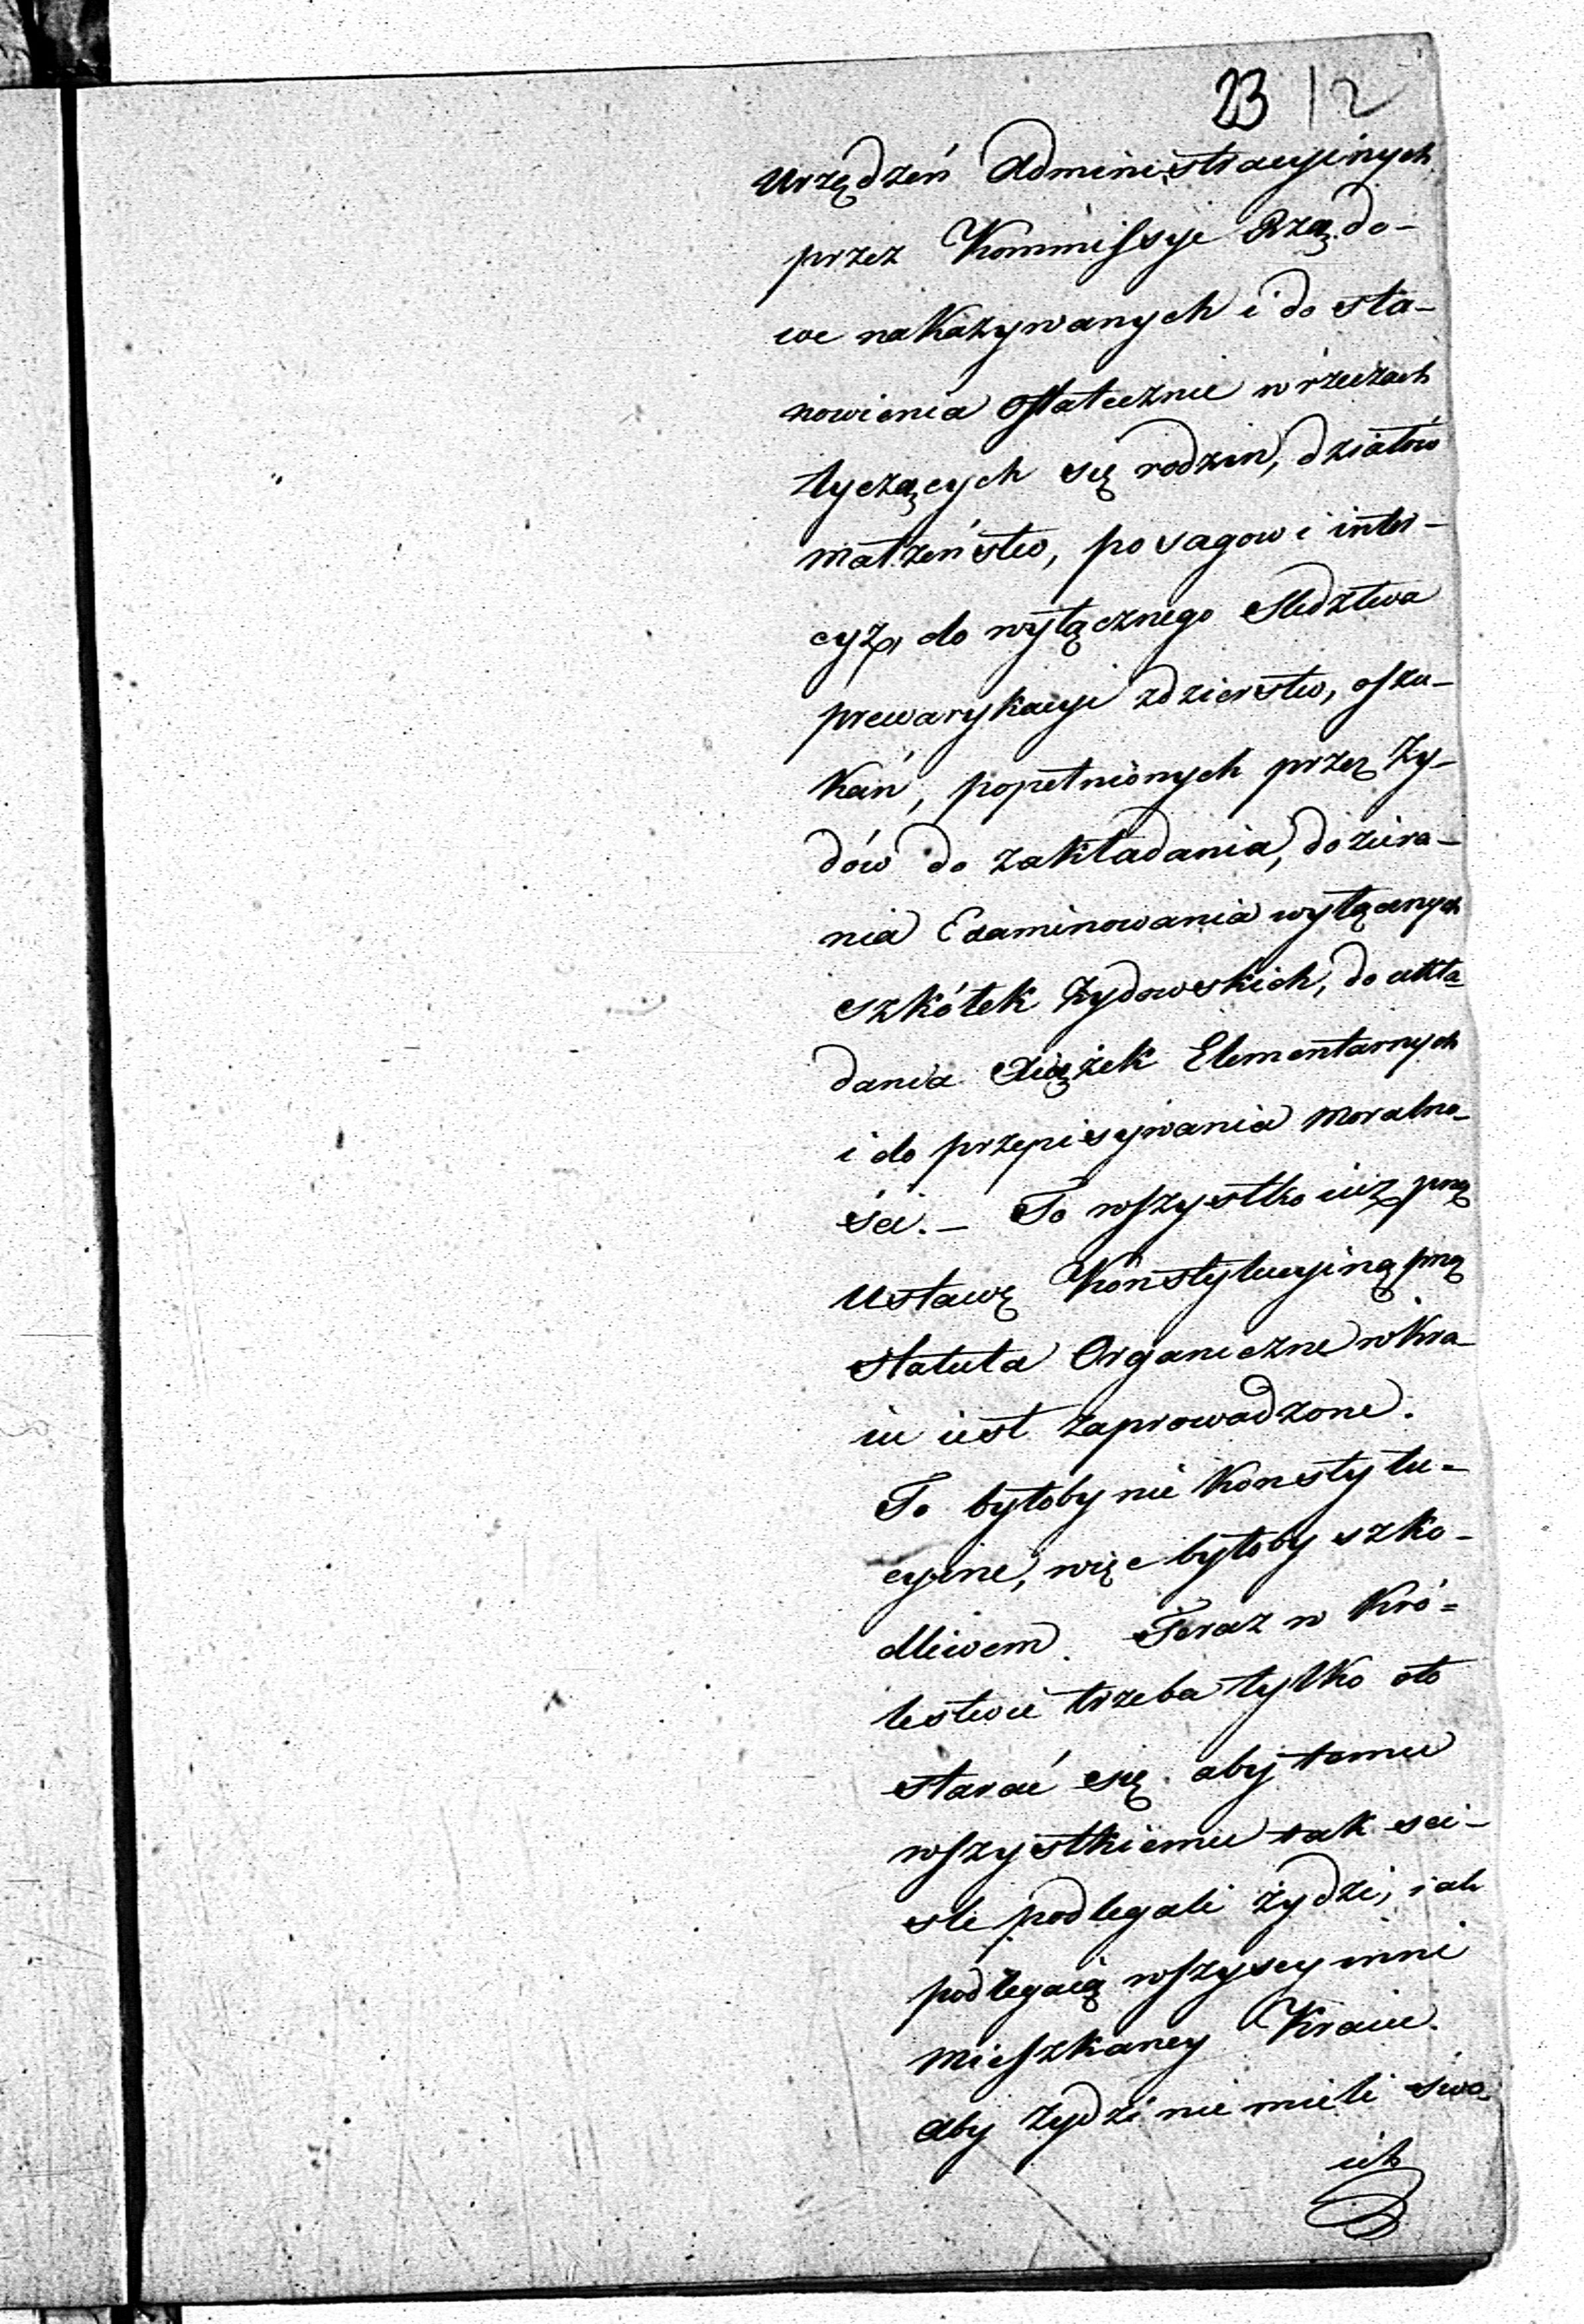 23 12
Urzędzeń Administracyinych
przez Kommissye Rządo-
we nakazywanych i do sta-
nowienia ostatecznie w rzeczach
tyczących się rodzin, działów
małżeństw, posagow i inter-
cyz, do wyłącznego sledztwa
prewarykacyi zdzierstw, oszu-
kań, popełnionych przez Ży-
dów do zakładania, doziera-
nia Examinowania wyłącznych
szkółek Żydowskich, do ukła-
dania Xiążek Elementarnych
i do przepisywania moralno-
ści. – To wszystko iuż prze
Ustawę Konstytucyiną prze
Statuta Organiczne w Kra-
iu iest zaprowadzone.
To byłoby nie Konstytu-
cyine, więc byłoby szko-
dliwem. Teraz w Kró-
lestwie trzeba tylko oto
starać się aby temu
wszystkiemu tak sci-
sle podlegali żydzi, iak
podlegaią wszyscy inni
mieszkancy Kraiu.
Aby Żydzi nie mieli swo-
ich